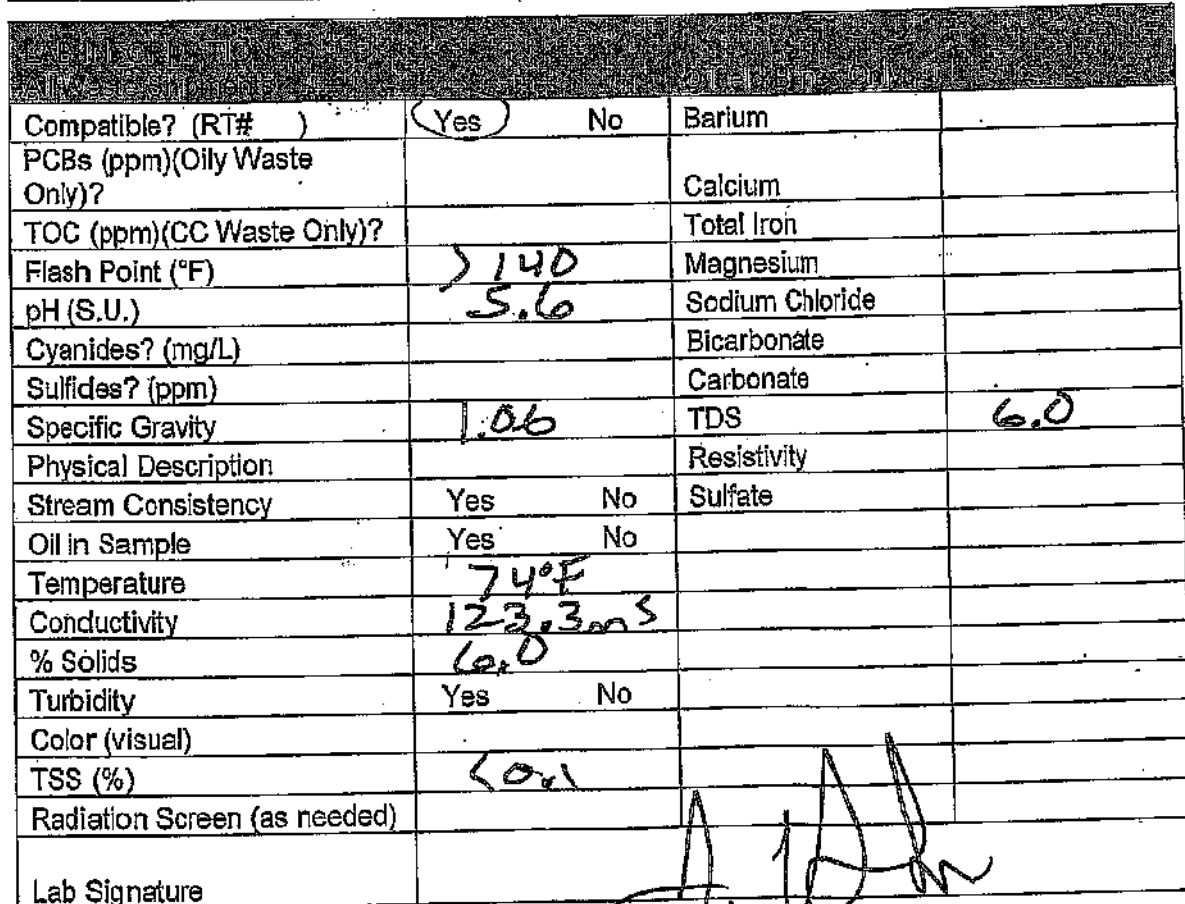 LAB INFORMATION
All Waste Shipments
Compatible? (RT# ) Yes No Barium
PCBs (ppm)(Oily Waste
Only)? Calcium
TOC (ppm)(CC Waste Only)? Total Iron
Flash Point (°F) >140 Magnesium
pH (S.U.) 5.6 Sodium Chloride
Cyanides? (mg/L) Bicarbonate
Sulfides? (ppm) Carbonate
Specific Gravity 1.06 TDS 6.0
Physical Description Resistivity
Stream Consistency Yes No Sulfate
Oil in Sample Yes No
Temperature 74°F
Conductivity 123.3mS
% Solids 6.0
Turbidity Yes No
Color (visual)
TSS (%) <0.1
Radiation Screen (as needed)
Lab Signature